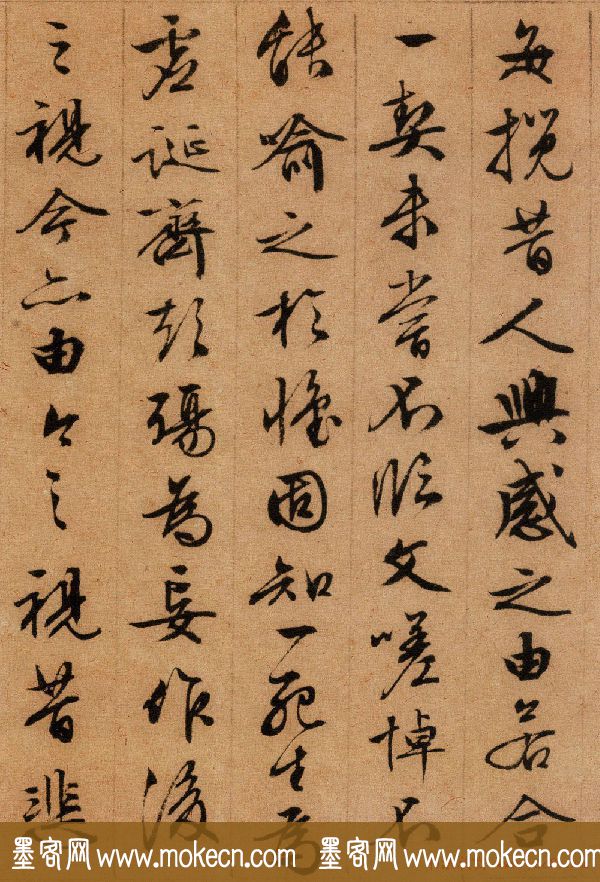 每攬昔人興感之由若合
一契未嘗不臨文嗟悼不
能喻之於懷固知一死生為
虛誕齊彭殤為妄作後
之視今亦由今之視昔悲
墨客网 www.mokecn.com 墨客网 www.mokecn.com